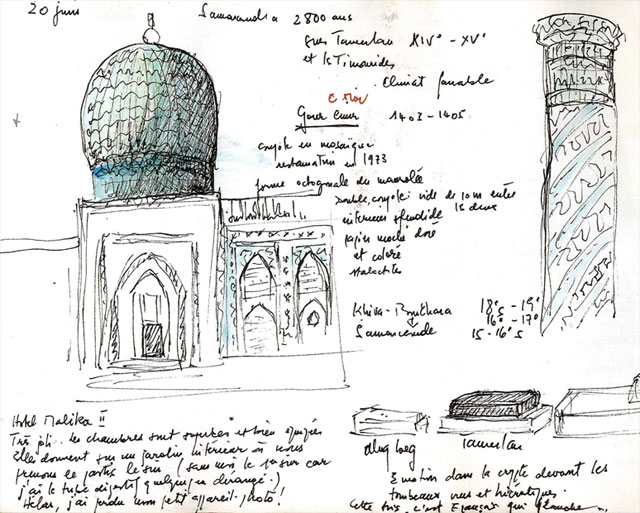 20 juin
Samarandra 2800 ans
Tamerlan XIVe - XVe
et les Timourides
Climat
Gour Emir 1403-1405
coupole en mosaïque
restauration en 1973
forme octogonale du mausolée
Double coupole : vide de 10 m entre
intérieur splendide les deux
papier maché doré
et coloré
stalactites
Khiva - Boukhara 18es - 19e
16e - 17e
Samarcande 15-16es
Hotel Malika II
Très joli. Les chambres sont superbes et bien équipées
Elle donnent sur un jardin intérieur où nous
prenons le le soir (sans moi ce soir car
j'ai le tube digestif quelque peu dérangé.)
Hélas, j'ai perdu mon petit appareil-photo!
Oulug beg Tamerlan
Emotion dans la crypte devant les
tombeaux nus et hiératiques.
Cette fois, c'est François qui flanche